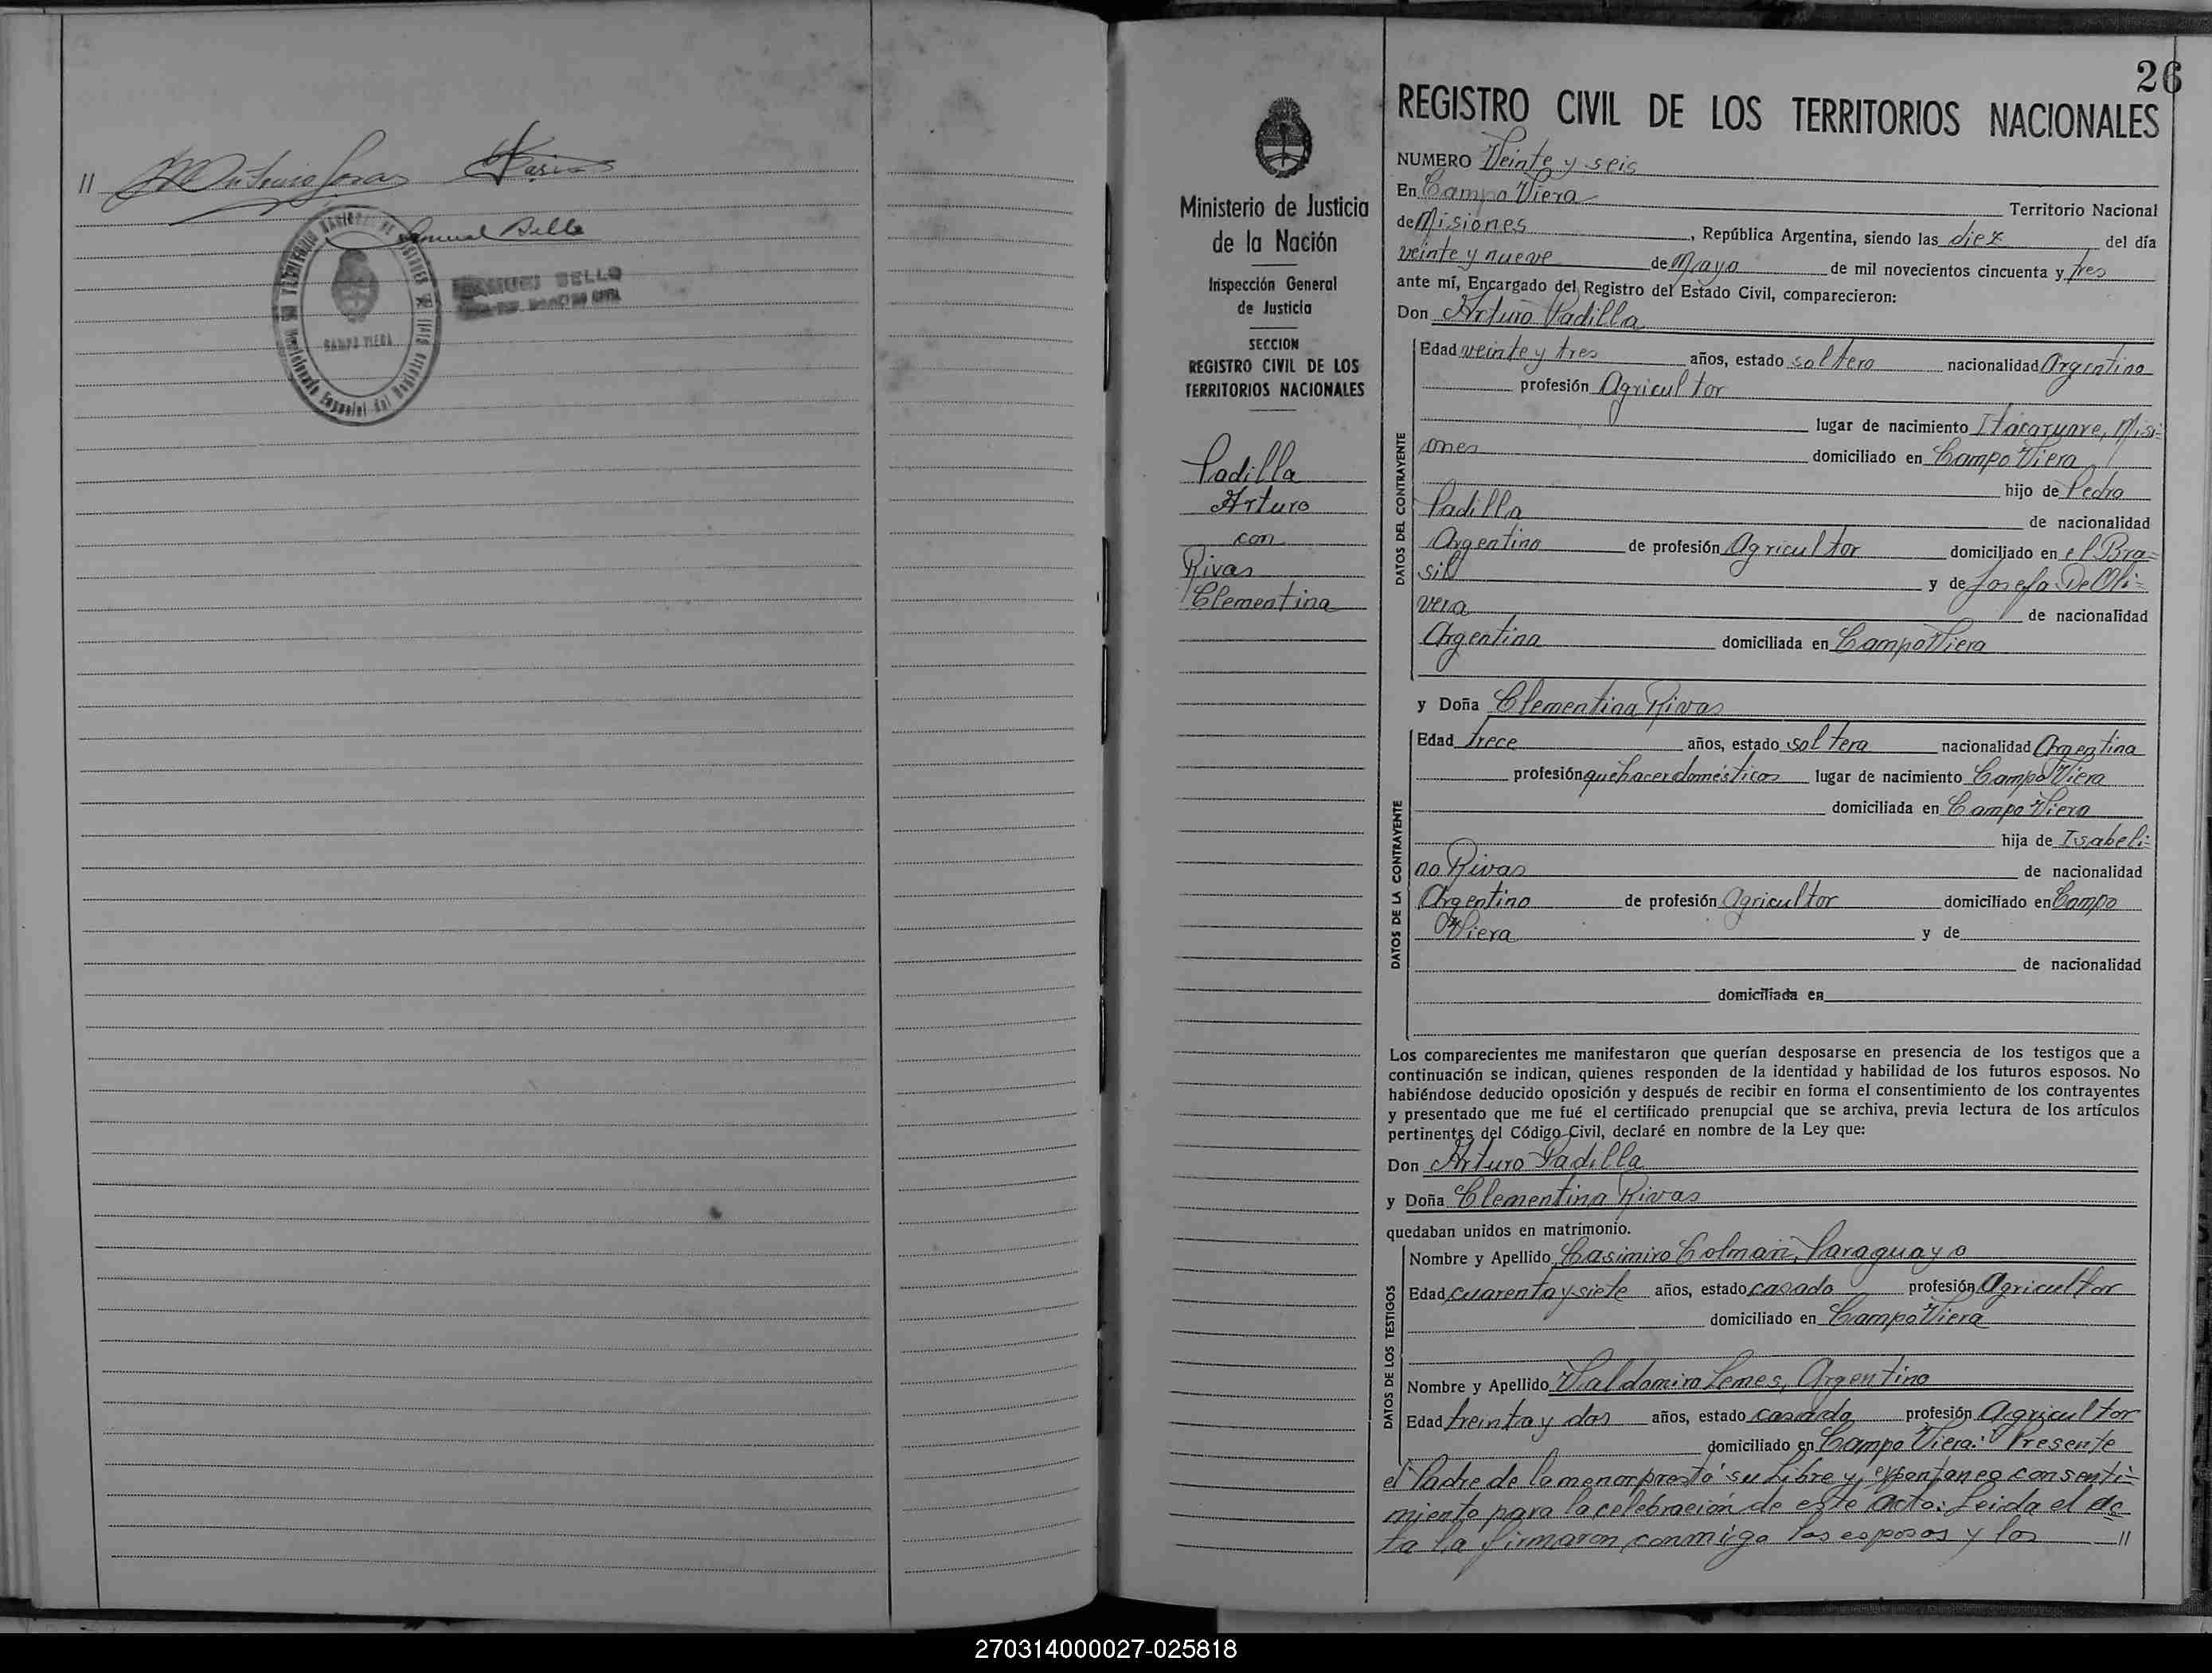 //
Manuel Bello
CAMPO VIERA
MANUEL BELLO
26
REGISTRO CIVIL DE LOS TERRITORIOS NACIONALES
Ministerio de Justicia
de la Nación
Inspección General
de Justicia
SECCION
REGISTRO CIVIL DE LOS
TERRITORIOS NACIONALES
Padilla
Arturo
con
Rivas
Clementina
NUMERO Veinte y seis
En Campo Viera Territorio Nacional
de Misiones, República Argentina, siendo las diez del día
veinte y nueve de Mayo de mil novecientos cincuenta y tres
ante mí, Encargado del Registro del Estado Civil, comparecieron:
Don Arturo Padilla
DATOS DEL CONTRAYENTE
Edad veinte y tres años, estado soltero nacionalidad Argentino
profesión Agricultor
lugar de nacimiento Itacaruare, Misi=
ones domiciliado en Campo Viera
hijo de Pedro
Padilla de nacionalidad
Argentino de profesión Agricultor domiciliado en el Bra=
sil y de Josefa De Oli=
vera de nacionalidad
Argentina domiciliada en Campo Viera
y Doña Clementina Rivas
DATOS DE LA CONTRAYENTE
Edad trece años, estado soltera nacionalidad Argentina
profesión quehacer domésticos lugar de nacimiento Campo Viera
domiciliada en Campo Viera
hija de Isabeli=
no Rivas de nacionalidad
Argentino de profesión Agricultor domiciliado en Campo
Viera y de
de nacionalidad
domiciliada en
Los comparecientes me manifestaron que querían desposarse en presencia de los testigos que a
continuación se indican, quienes responden de la identidad y habilidad de los futuros esposos. No
habiéndose deducido oposición y después de recibir en forma el consentimiento de los contrayentes
y presentado que me fué el certificado prenupcial que se archiva, previa lectura de los artículos
pertinentes del Código Civil, declaré en nombre de la Ley que:
Don Arturo Padilla
y Doña Clementina Rivas
quedaban unidos en matrimonio.
DATOS DE LOS TESTIGOS
Nombre y Apellido Casimiro Colman, Paraguayo
Edad cuarenta y siete años, estado casado profesión Agricultor
domiciliado en Campo Viera
Nombre y Apellido Valdomiro Lemes, Argentino
Edad treinta y dos años, estado casado profesión Agricultor
domiciliado en Campo Viera: Presente
el Padre de la menor prestó su libre y espontaneo consenti=
miento para la celebración de este acto: Leida el ac
ta la firmaron conmigo los esposos y los //
270314000027-025818